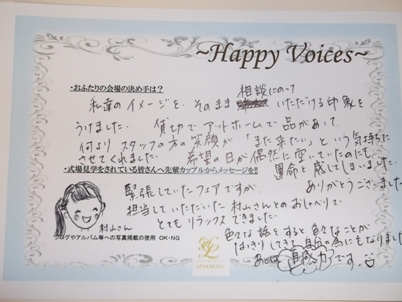 ~Happy Voices~
・おふたりの会場の決め手は?
相談にのって
私達のイメージを、そのまま いただける印象を
うけました。貸切でアットホームで品があって、
何よりスタッフの方の笑顔が「また来たい」という気持ちに
させてくれました。希望の日が偶然に空いていたのにも、
運命を感じてしまいました。
・式場見学をされている皆さんへ先輩カップルからメッセージを!!
ありがとうございました
緊張していたフェアですが、
担当していただいた村山さんとのおしゃべりで
とてもリラックスできました。
村山さん
色々な話をすると色々なことが
はっきりしてきて自分の為にもなりました
あとは直感力です。
ブログやアルバム等への写真掲載の使用 OK・NG